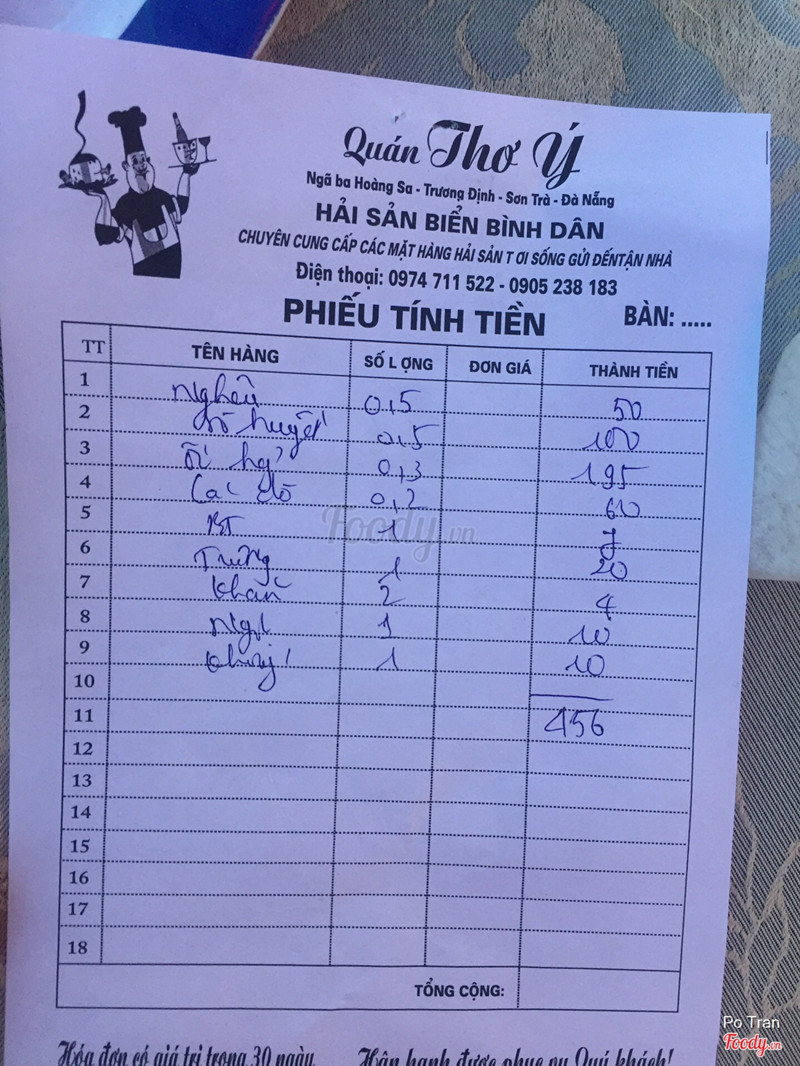 Quán Thơ Ý
Ngã ba Hoàng Sa - Trương Định - Sơn Trà - Đà Nẵng
HẢI SẢN BIỂN BÌNH DÂN
CHUYÊN CUNG CẤP CÁC MẶT HÀNG HẢI SẢN T ƠI SỐNG GỬI ĐẾNTẬN NHÀ
Điện thoại: 0974 711 522 - 0905 238 183
PHIẾU TÍNH TIỀN BÀN: .....
TT TÊN HÀNG SỐ L ỢNG ĐƠN GIÁ THÀNH TIỀN
1 Nghêu 0,5 50
2 Sò huyết 0,5 100
3 Ốc 0,3 195
4 0,2 60
5 BT 1 7
6 Trứng 1 20
7 khăn 2 4
8 Ngt 1 10
9 1 10
10
11 456
12
13
14
15
16
17
18
TỔNG CỘNG:
Hóa đơn có giá trị trong 30 ngày Hân hạnh được phục vụ Quý khách!
Foody.vn
Po Tran
Foody.vn